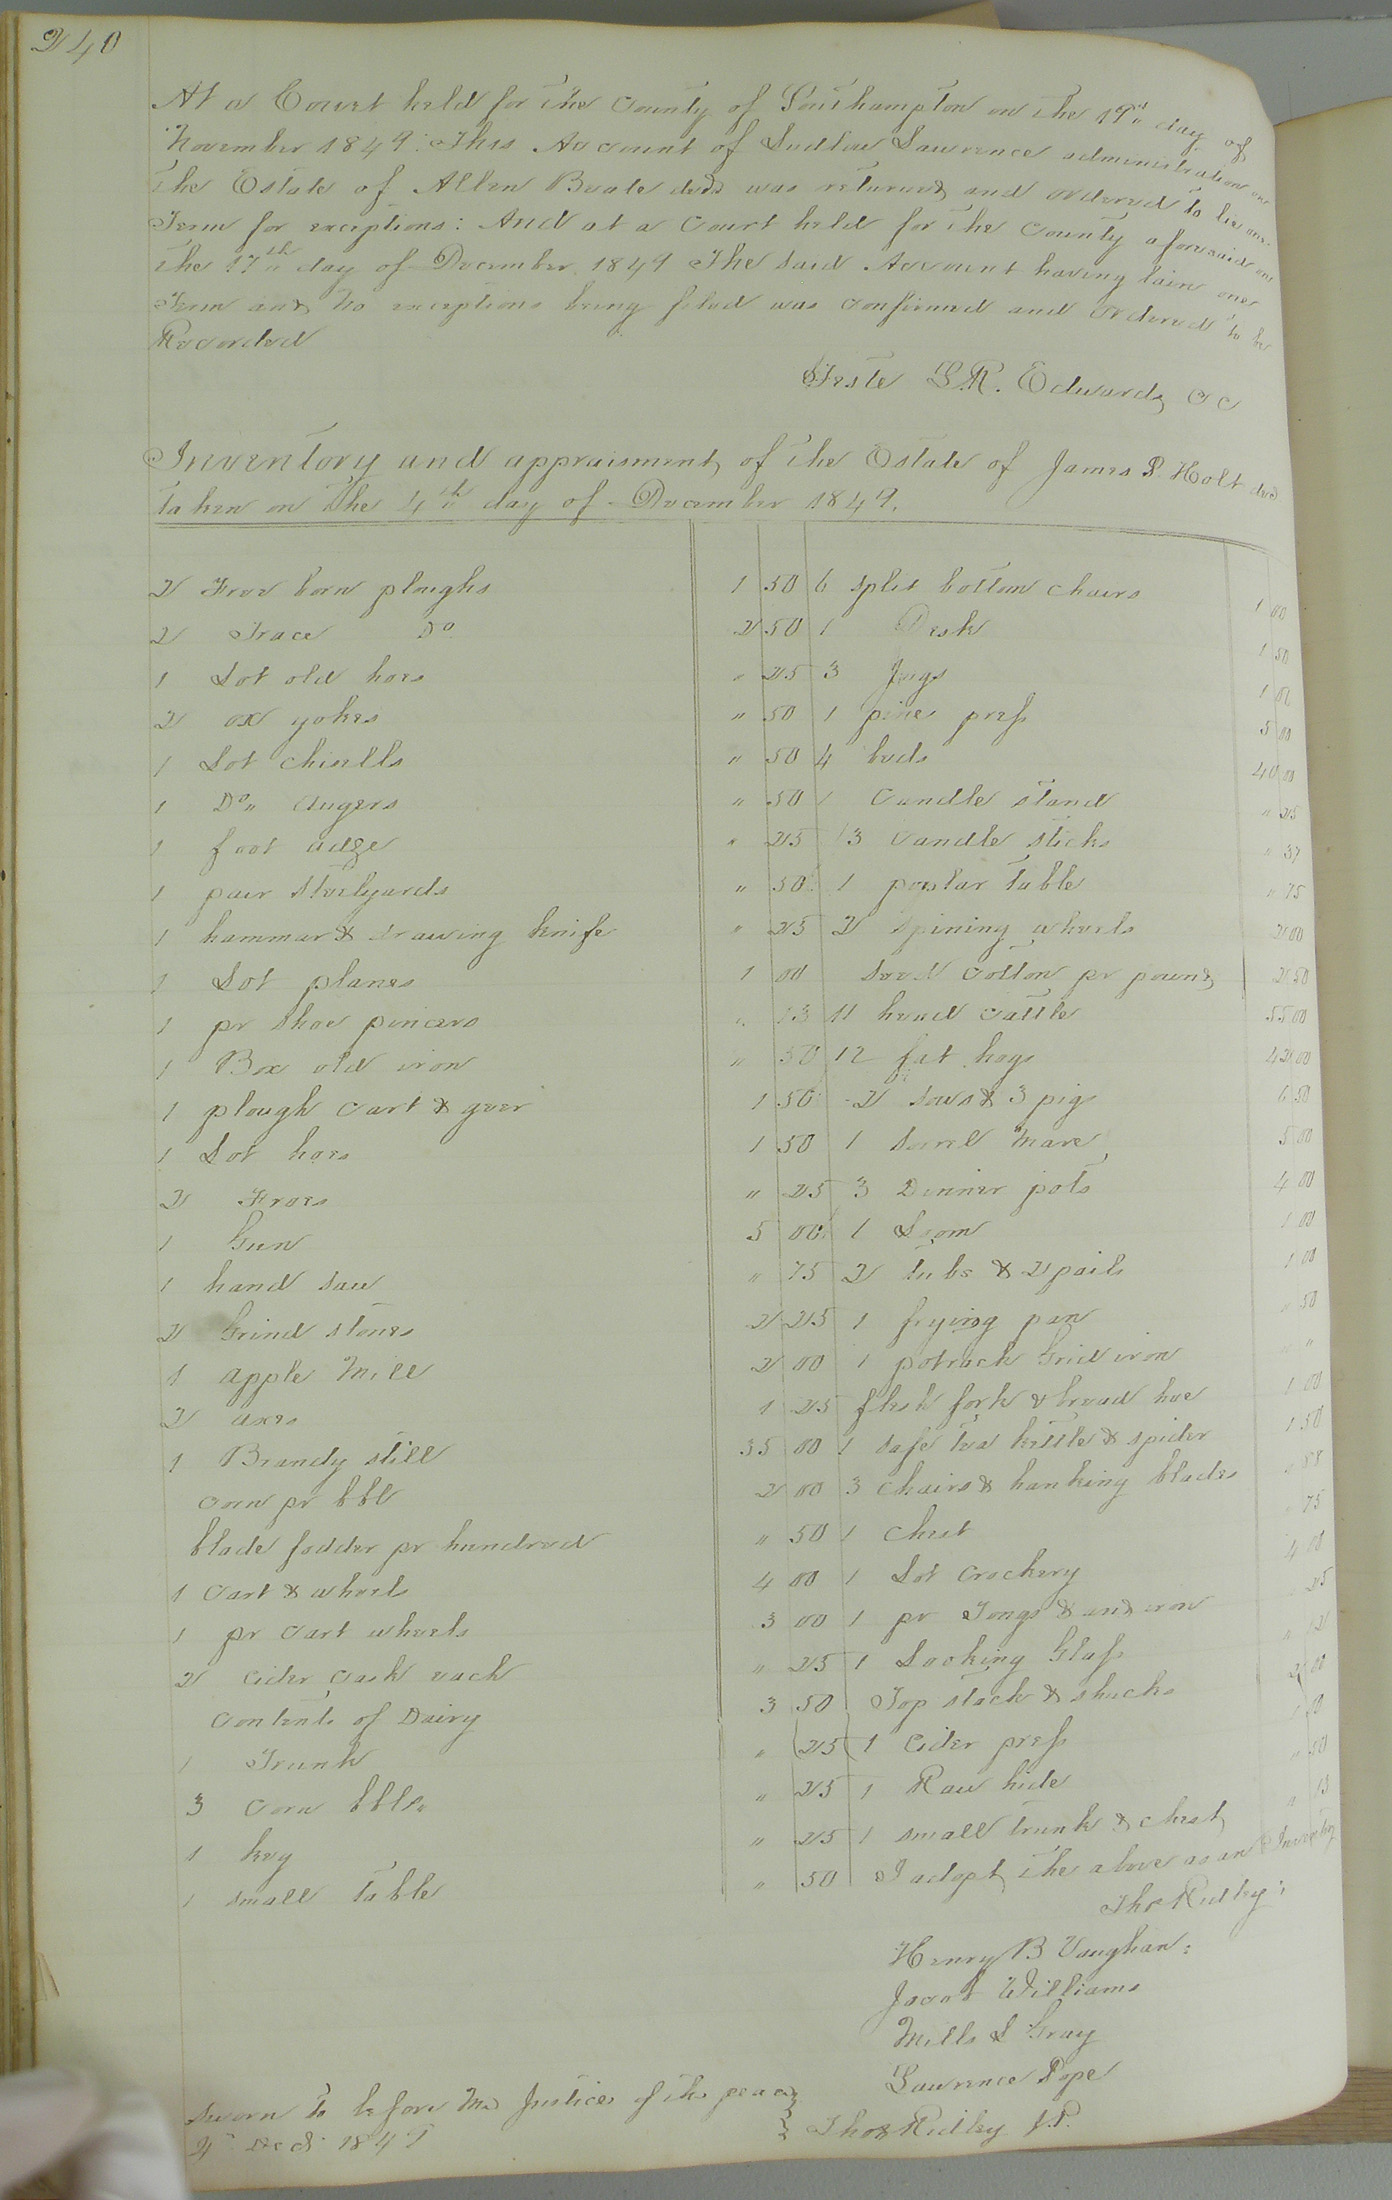 240
At a Court held for the County of Southampton on the 19th day of
November 1849: This Account of Ludlow Lawrence administration on
the Estate of Allen Beale decd was returned and ordered to lie one
Term for exceptions: And at a Court held for the County aforesaid on
the 17th day of December 1849 The said Account having lain one
Term and no exceptions being filed was confirmed and ordered to be
Recorded
Teste L.R. Edwards CC
Inventory and appraisment of the Estate of James P. Holt decd
taken on the 4th day of December 1849.
2 Free born ploughs 1 50
2 Trace Do 2 50
1 Lot old hoes " 25
2 ox yokes " 50
1 Lot chisells " 50
1 Do " Augers " 50
1 foot adze " 25
1 pair steelyards " 50
1 hammar & drawing knife " 25
1 Lot planes 1 00
1 pr shoe pincers " 13
1 Box old iron " 50
1 plough cart & geer 1 50
1 Lot hoes 1 50
2 Froes " 25
1 Gun 5 00
1 hand saw " 75
2 Grind stones 2 25
1 apple Mill 2 00
2 axes 1 25
1 Brandy still 35 00
Corn pr bbl 2 00
blade fodder pr hundred " 50
1 Cart & wheels 4 00
1 pr cart wheels 3 00
2 cider cask each " 25
Contents of Dairy 3 50
1 Trunk " 25
3 Corn bbls. " 25
1 keg " 25
1 small table " 50
6 split bottom chairs 1 00
1 Desk 1 50
3 Jugs 1 00
1 pine press 5 00
4 beds 40 00
1 Candle stand " 25
3 Candle sticks " 37
1 poplar table " 75
2 spining wheels 2 00
seed cotton pr pound 2 50
11 head cattle 55 00
12 fat hogs 42 00
2 sows & 3 pigs 6 50
1 sorrel Mare 5 00
3 Dinner pots 4 00
1 Loom 1 00
2 tubs & 2 pails 1 00
1 frying pan " 50
1 potrack Grid iron " "
flesh fork & broad hoe 1 00
1 safe tea kettle & spider 1 50
3 chairs & hanking blades " 88
1 chest " 75
1 Lot Crockery 4 00
1 pr Tongs & and iron " 25
1 Looking Glass " 12
Top stack & shucks 2 00
1 Cider press 1 00
1 Raw hide " 50
1 small trunk & chest " 13
I adopt the above as an Inventory
Thos Ridley:
Henry B Vaughan:
Jacob Williams
Mills L Gray
Lawrence Pope
Sworn to before me Justice of the peace
4th Decr 1849
Thos Ridley J.P.